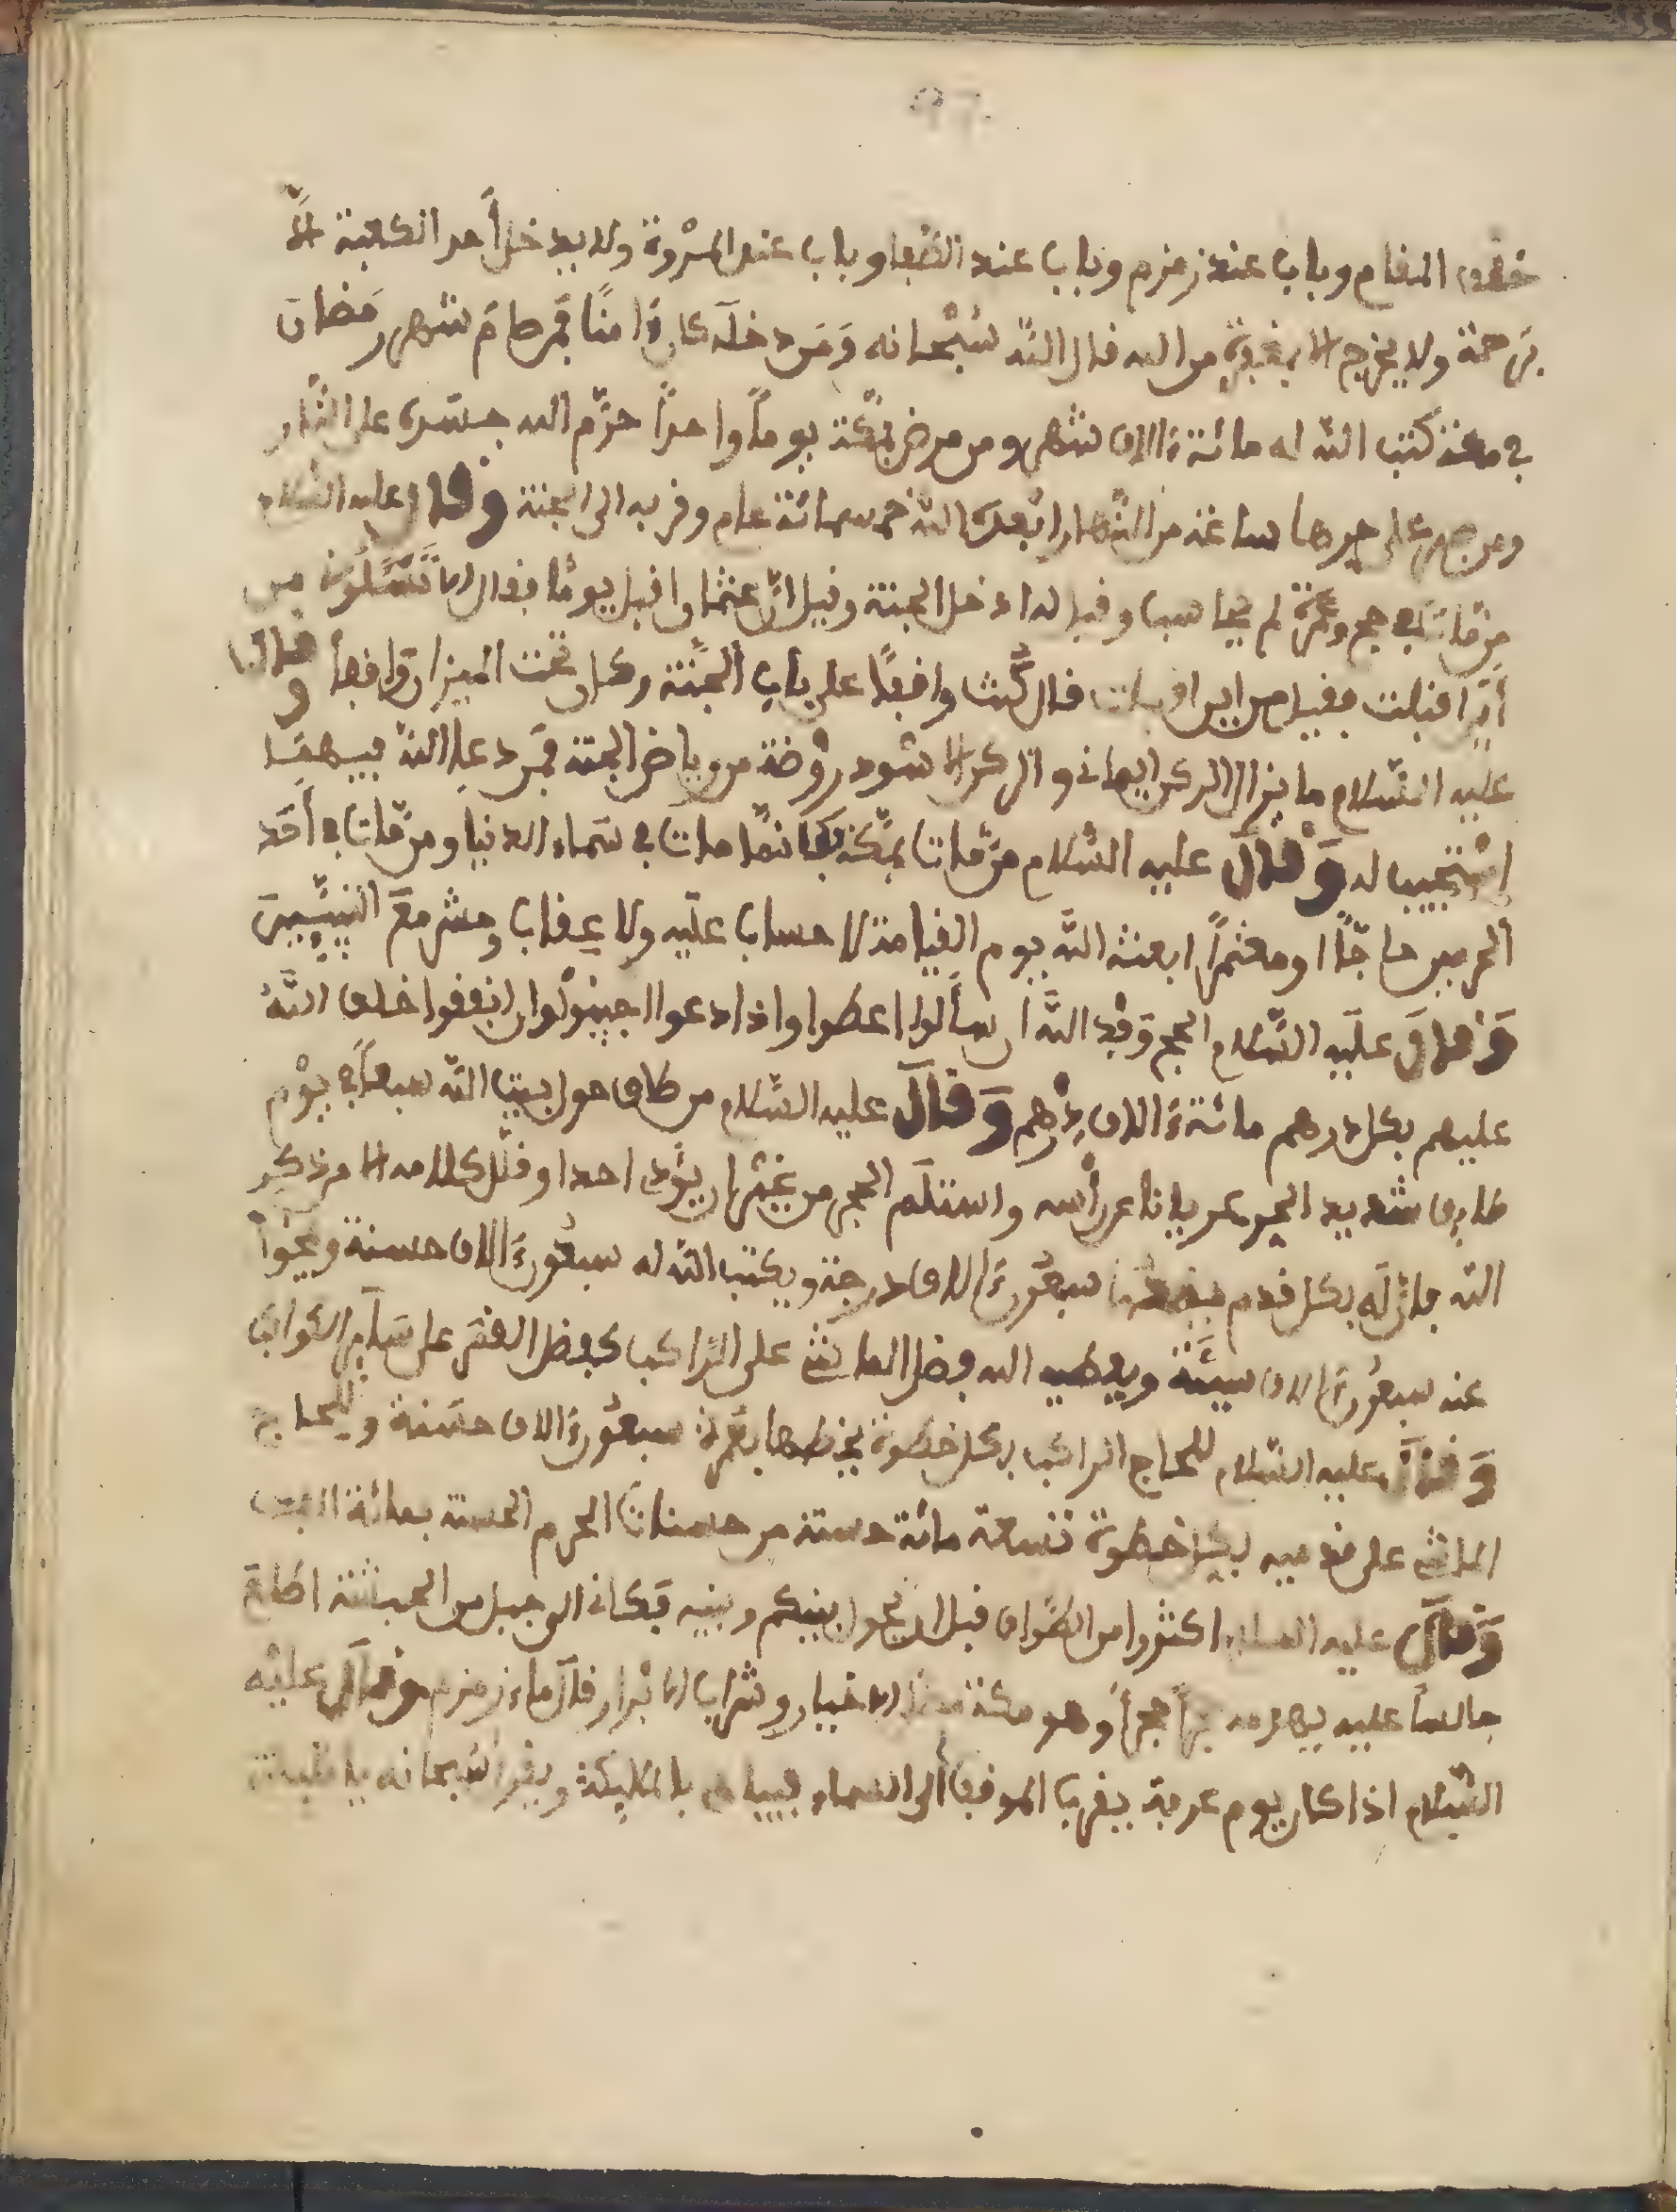 خلف المقام وباب عند زمزم وباب عند الصفا وباب عند المرْوة ولا يدخل أحد الكعبة إلاّ
برحمة ولا يخرج إلا بمغفرة من الله قال اللّه سُبْحانه وَمَن دخلَه كان ءَامنًا فمن صامَ شهر رمَضانَ
في مكة كتب اللّه له مائة ءالاف شهر ومن مرض بمكّة يوماً واحداً حرّم الله جسَده على النَّار
ومن صبر على حرها ساعة من النَّهار ابْعدَه اللّه خمسمائة عام وقربه الى الجنة وقال عليه السّلام
من مّات في حج وعُمْرة لم يحاسب وقيل له ادخل الجنة وقيل انّ عثمان اقبل يومًا فقال الا تَسْئَلُونى من
أيْن اقبلت فقيل من اين اقبلت قال كُنت واقفًا على باب الجَنّة وكان تحت الميزاب واقفا وقال
عليه السّلام ما بين الركن اليمانى والركن الاسْود روْضة من رياض الجنة فمَن دعا اللّه فيهمَا
اسْتجيب له وَقالَ عليه السّلام من مّات بمكّة فكَانّما مات في سَماء الدنيا ومن مّات في أحَد
الحرمين حاجّاً او معتمراً ابعثه اللّه يوم القيامة لا حساب علَيه ولا عِقاب وحشر معَ النبيِّينَ
وَقالَ علَيْه السَّلام الحج وَفْد اللَّه ان سأَلوا اعطوا واذا دعوا اجيبوا وان انفقوا خلف اللَّهُ
عليهم بكل درهم مائة ءَالاف دِرْهم وَقالَ عليه السَّلام من طاف حول بيت اللّه سبعاً في يوْم
صايف شديد الحر عريانا عن رأْسه واستلَم الحجر من غيْر ان يؤْذى احدا وقلّ كلامه الا من ذكر
اللّه فانّ لَه بكل قدم يضعها سبعُون ءَالاف درجة ويكتب اللّه له سبعُون ءَالاف حسنة ويمحُواْ
عنه سبعُون ءَالاف سيئَة ويعطيه الله وفضل الماشى على الرَّاكب كفضل القمَر على سَآيرِ الكواكب
وَقالَ عليه السّلام للحاج الراكب بكل خطوة يخطوها بعيره سبعُون ءَالاف حسَنة وللحاج
الماشى على قدميه بكل خطوة تسعة مائة حسنة من حسنات الحرم الحسنة بمائة الف
وَقالَ عليه السلام اكثروا من الطوَاف قبل ان يحول بينكم وبينه فَكانى الى رجل من الحبشة اصلع
جالساً عليه يهدمه حجراً حجراً وهو مكة الاخيار وشراب الابْرار قالَ ماء زمزم وقالَ عليْه
السّلام اذا كان يوم عرفة يقرب الموقف الى السماء فيباهى بالملٰيكة ويقول سُبحانه يا مليكتى